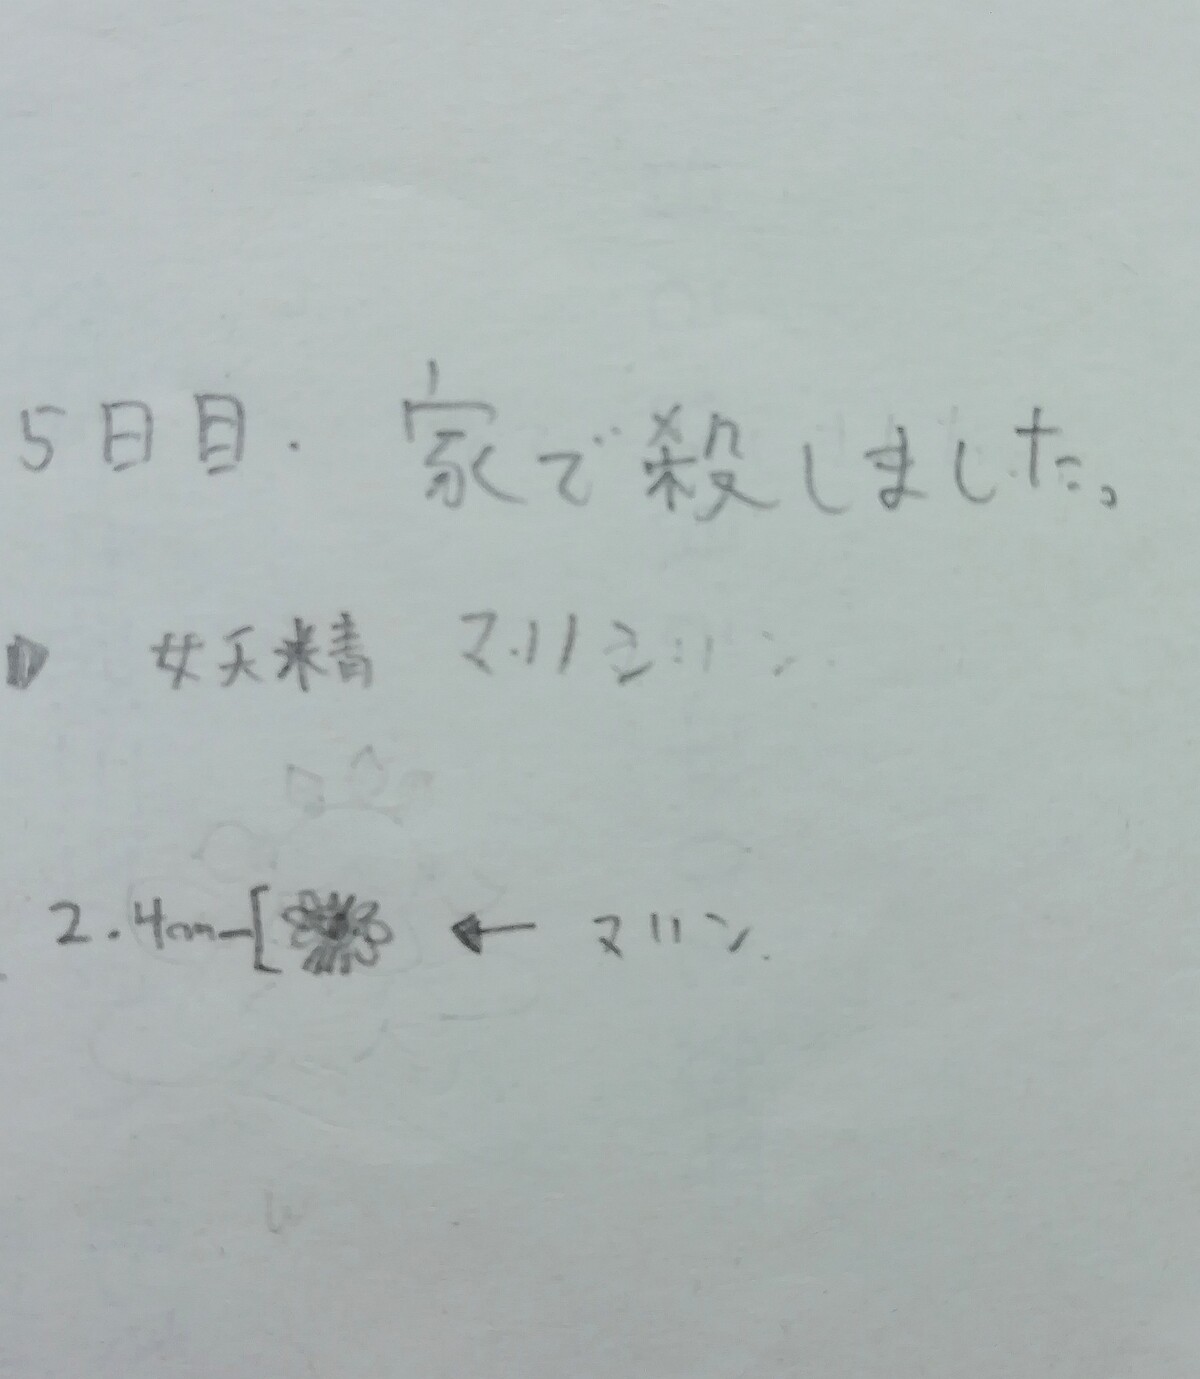 5日目. 家で殺しました。
妖精 マリ
2.4cm ← マリン.